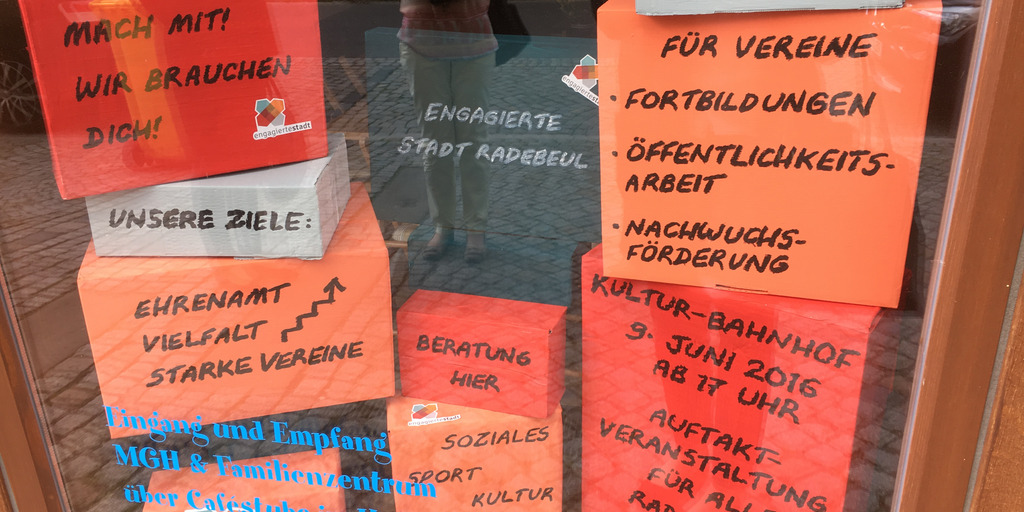 MACH MIT!
WIR BRAUCHEN
DICH!
engagiertestadt
UNSERE ZIELE:
EHRENAMT
VIELFALT
STARKE VEREINE
Eingang und Empfang
MGH & Familienzentrum
über Caféstube im
ENGAGIERTE
STADT RADEBEUL
BERATUNG
HIER
engagiertestadt
SOZIALES
SPORT
KULTUR
engagiertestadt
FÜR VEREINE
• FORTBILDUNGEN
• ÖFFENTLICHKEITS-
ARBEIT
• NACHWUCHS-
FÖRDERUNG
KULTUR-BAHNHOF
9. JUNI 2016
AB 17 UHR
AUFTAKT-
VERANSTALTUNG
FÜR ALLE